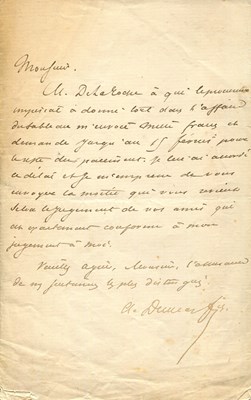 Monsieur.
M. Delaroche à qui le procureur
impérial a donné tort dans l'affaire
du tableau m'envoie mille francs et
demande jusqu'au 15 février pour
le reste du paiement. Je lui ai accordé
ce délai et je m'empresse de vous
envoyer la moitié qui vous revient
selon le jugement de nos amis qui
est exactement conforme à mon
jugement à moi.
Veuillez agréer, Monsieur, l'assurance
de mes sentiments les plus distingués.
A. Dumas fils.